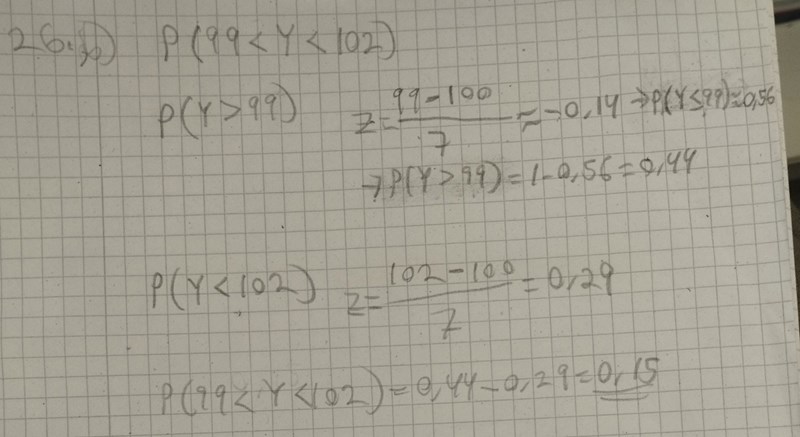 26.b) P(99<Y<102)
P(Y>99) z=(99-100)/7≈-0,14 →P(Y≤99)=0,56
→P(Y>99)=1-0,56=0,44
P(Y<102) z=(102-100)/7=0,29
P(99<Y<102)=0,44-0,29=0,15